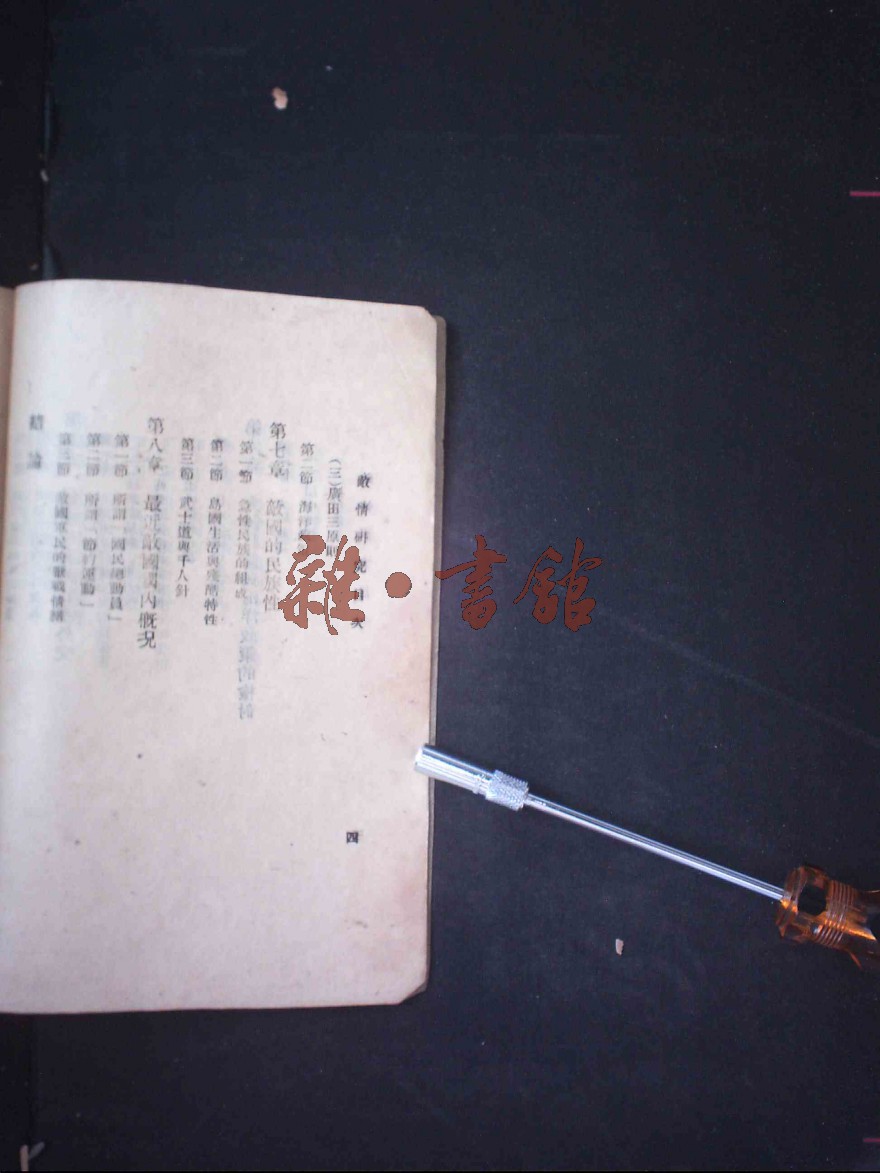 敵情研究目次
(三)廣田三原則
第二節 海洋
第七章 敵國的民族性
第一節 急性民族的組成
第二節 島國生活與殘酷特性
第三節 武士道與千人針
第八章 最近敵國國內概況
第一節 所謂「國民總動員」
第二節 所謂「節約運動」
第三節 敵國軍民的厭戰情緒
結論
四
雜·書館